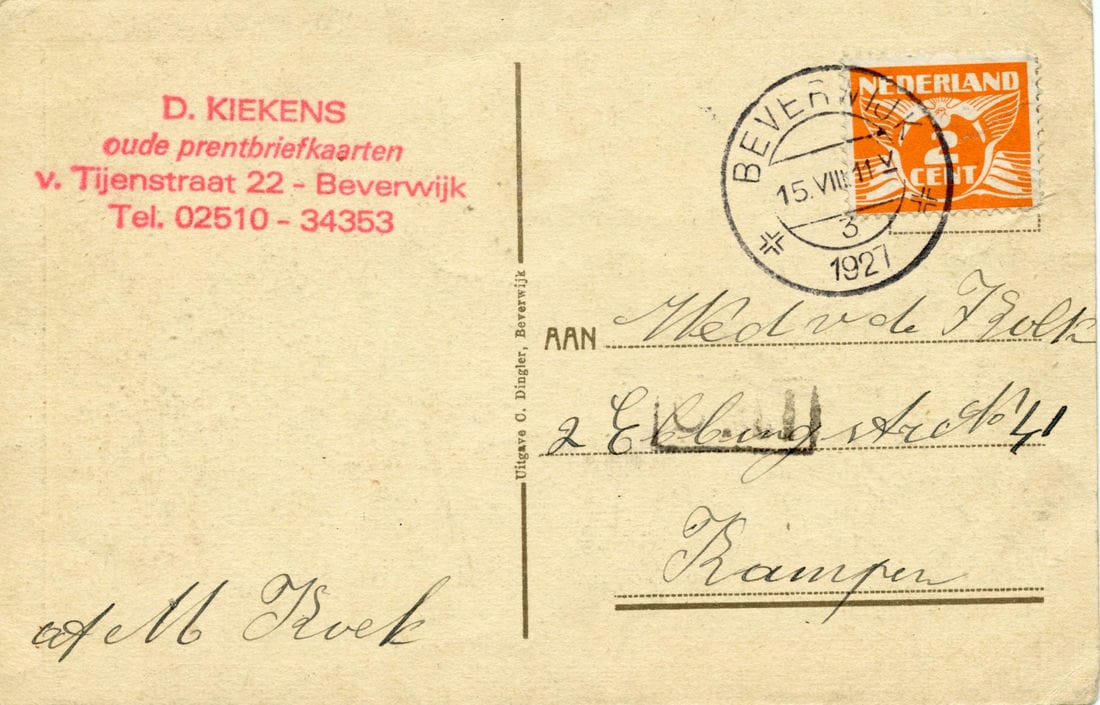 D. KIEKENS
oude prentbriefkaarten
v. Tijenstraat 22 - Beverwijk
Tel. 02510 - 34353
af M Koek
Uitgave C. Dingler, Beverwijk
NEDERLAND
2
CENT
BEVERWIJK
15.VIII.11V
3
1927
AAN Wed v de Kolk
2 Ebbingestr No 41
Kampen